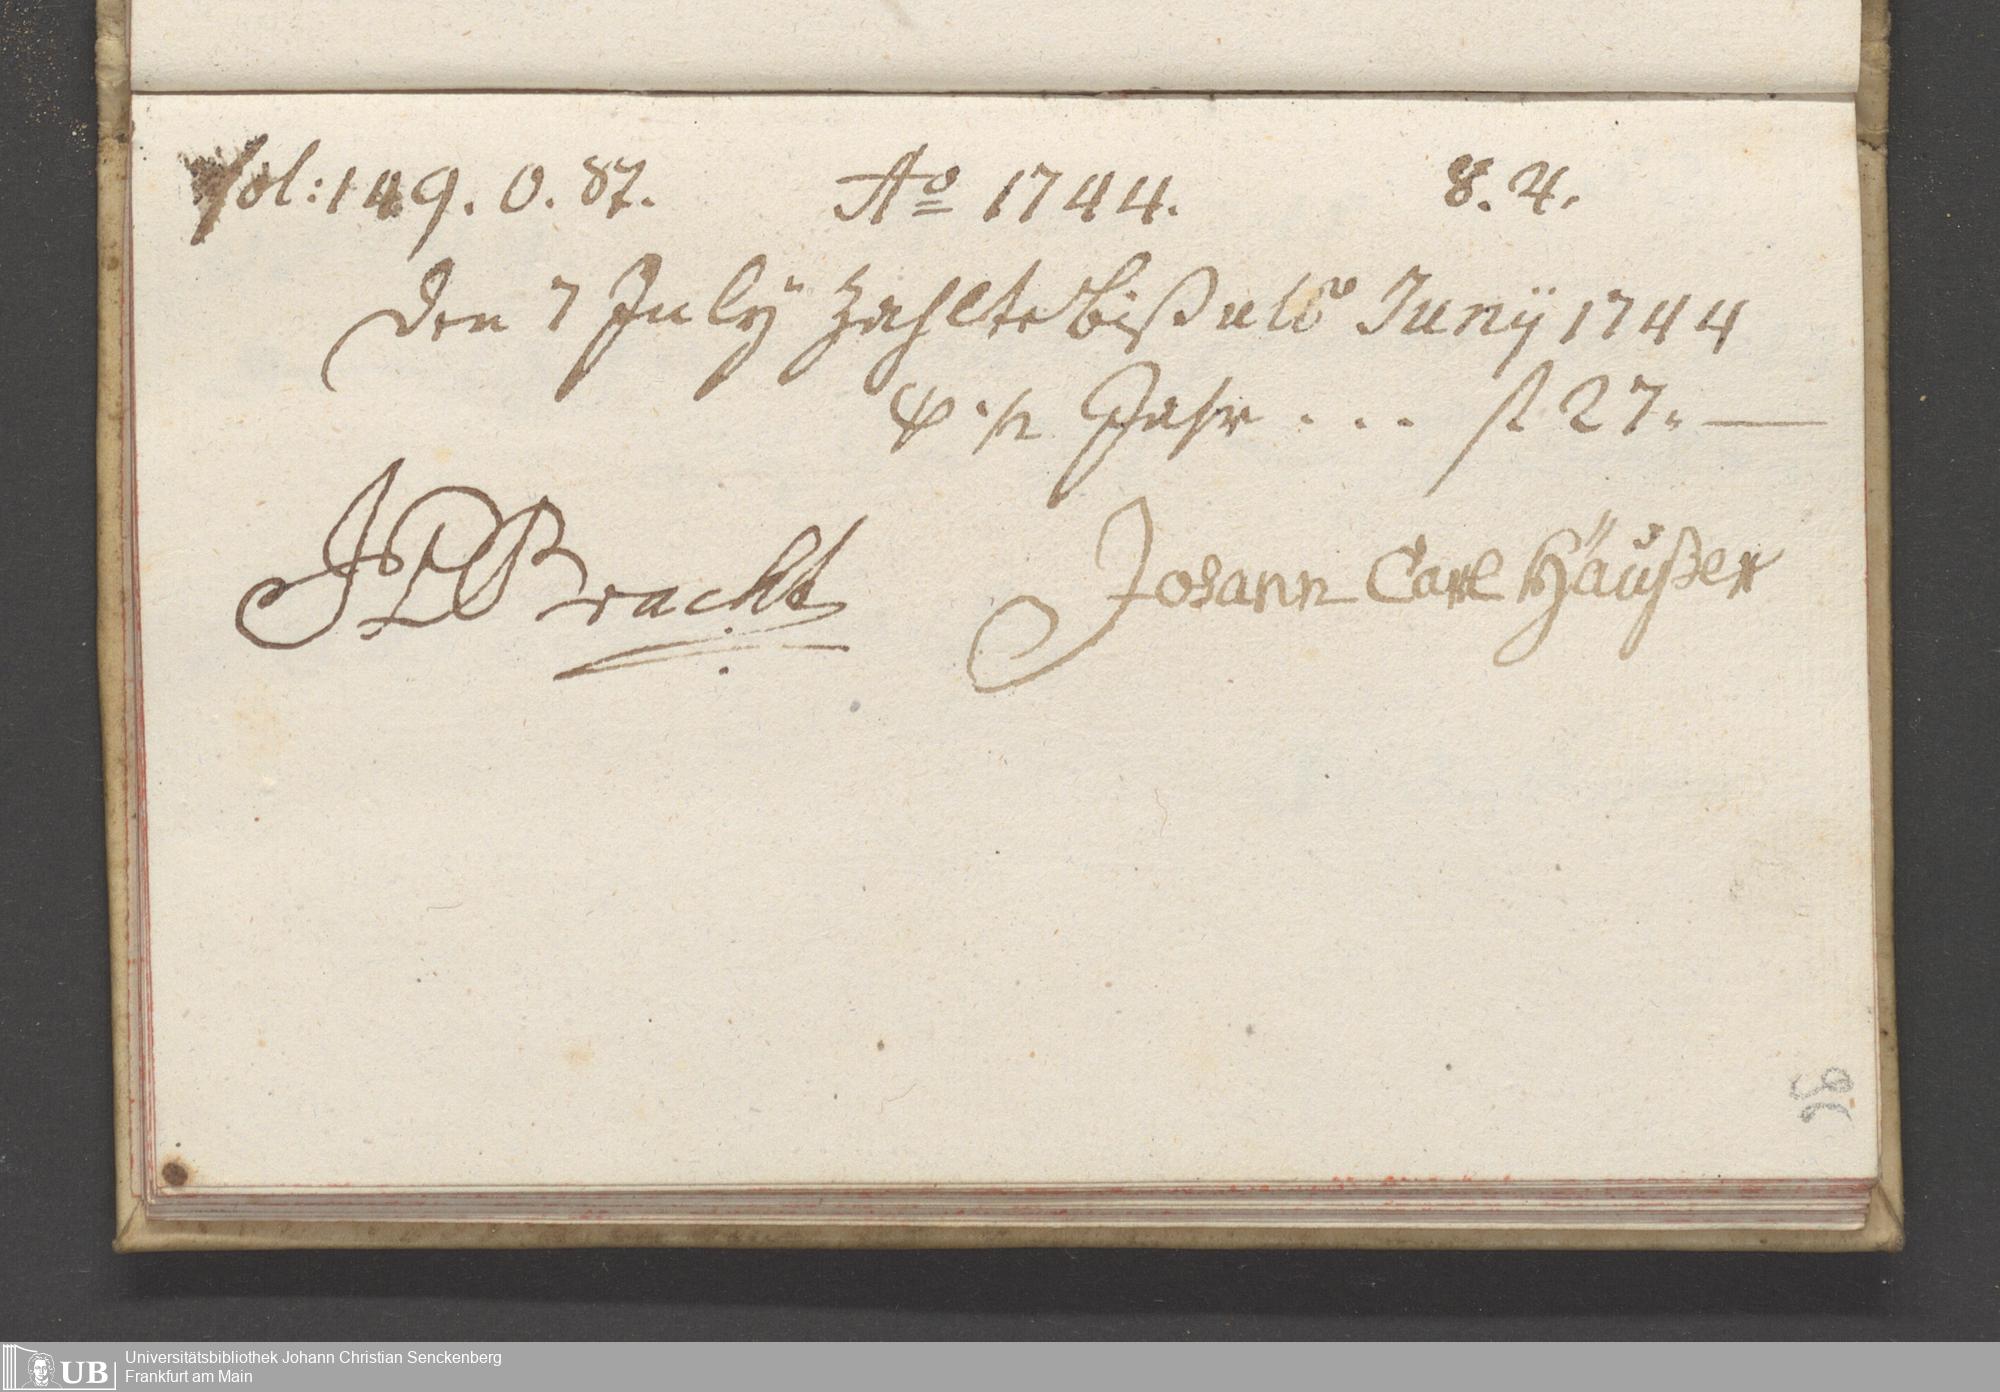 fol: 149. O. 87. Ao 1744. 8. 4.
den 7 July zahlte biß ulto Juny 1744
½ Jahr . . . f 27. —
JPBracht Johann Carl Häußer
56
Universitätsbibliothek Johann Christian Senckenberg
Frankfurt am Main
UB